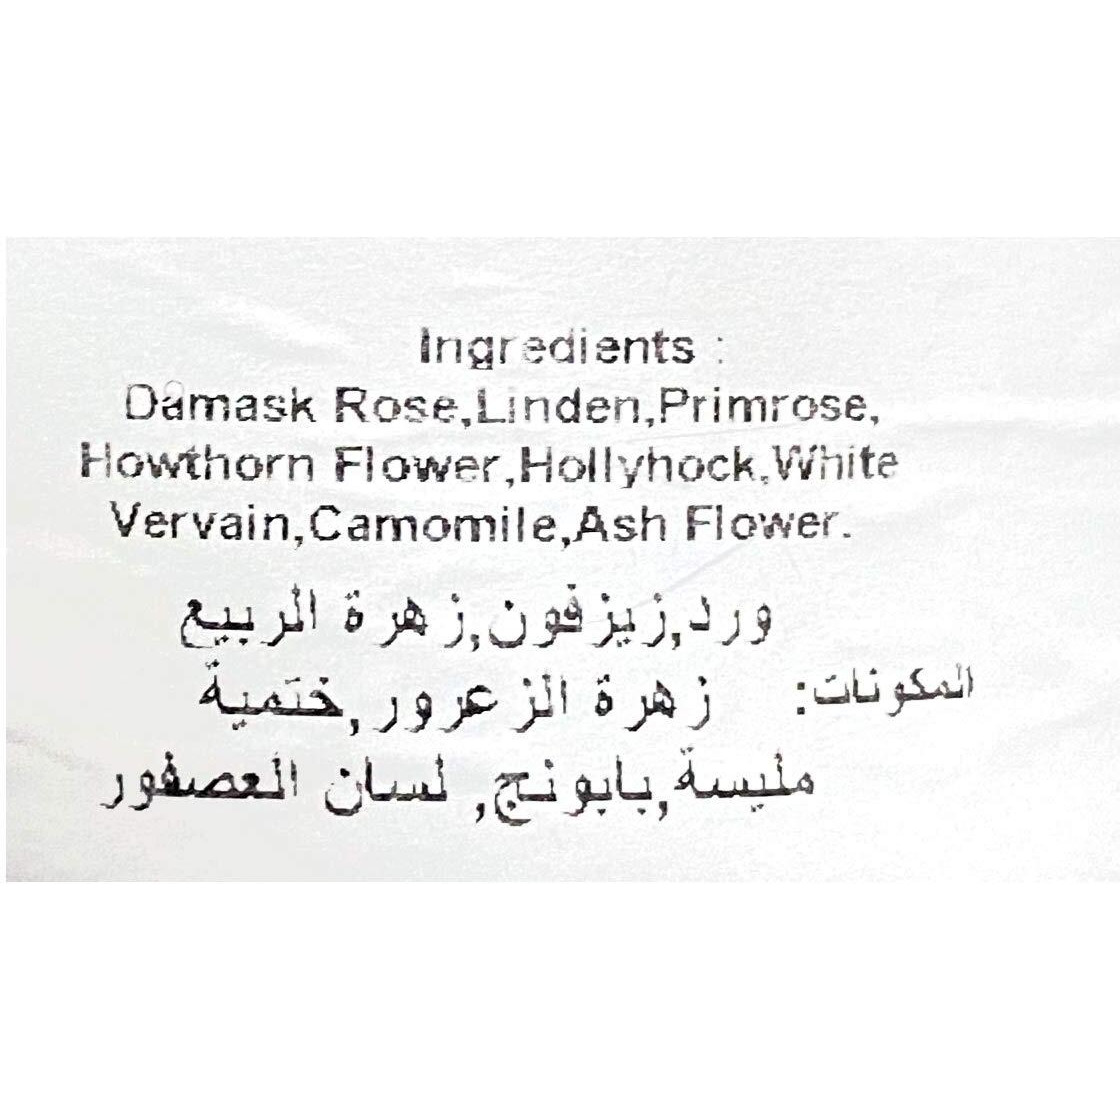 Ingredients :
Damask Rose,Linden,Primrose,
Howthorn Flower,Hollyhock,White
Vervain,Camomile,Ash Flower.
ورد,زيزفون,زهرة الربيع
المكونات: زهرة الزعرور,ختمية
مليسة,بابونج, لسان العصفور